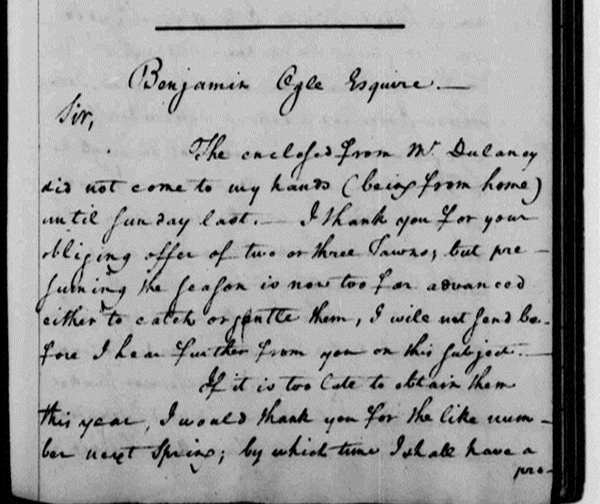 Benjamin Ogle Esquire.—
Sir,
The enclosed from Mr. Dulaney
did not come to my hands (being from home)
until Sunday last.— I thank you for your
obliging offer of two or three Fawns; but pre-
suming the season is now too far advanced
either to catch or gentle them, I will not send be-
fore I hear further from you on this subject.—
If it is too late to obtain them
this year, I would thank you for the like num-
ber next Spring; by which time I shall have a
pro-